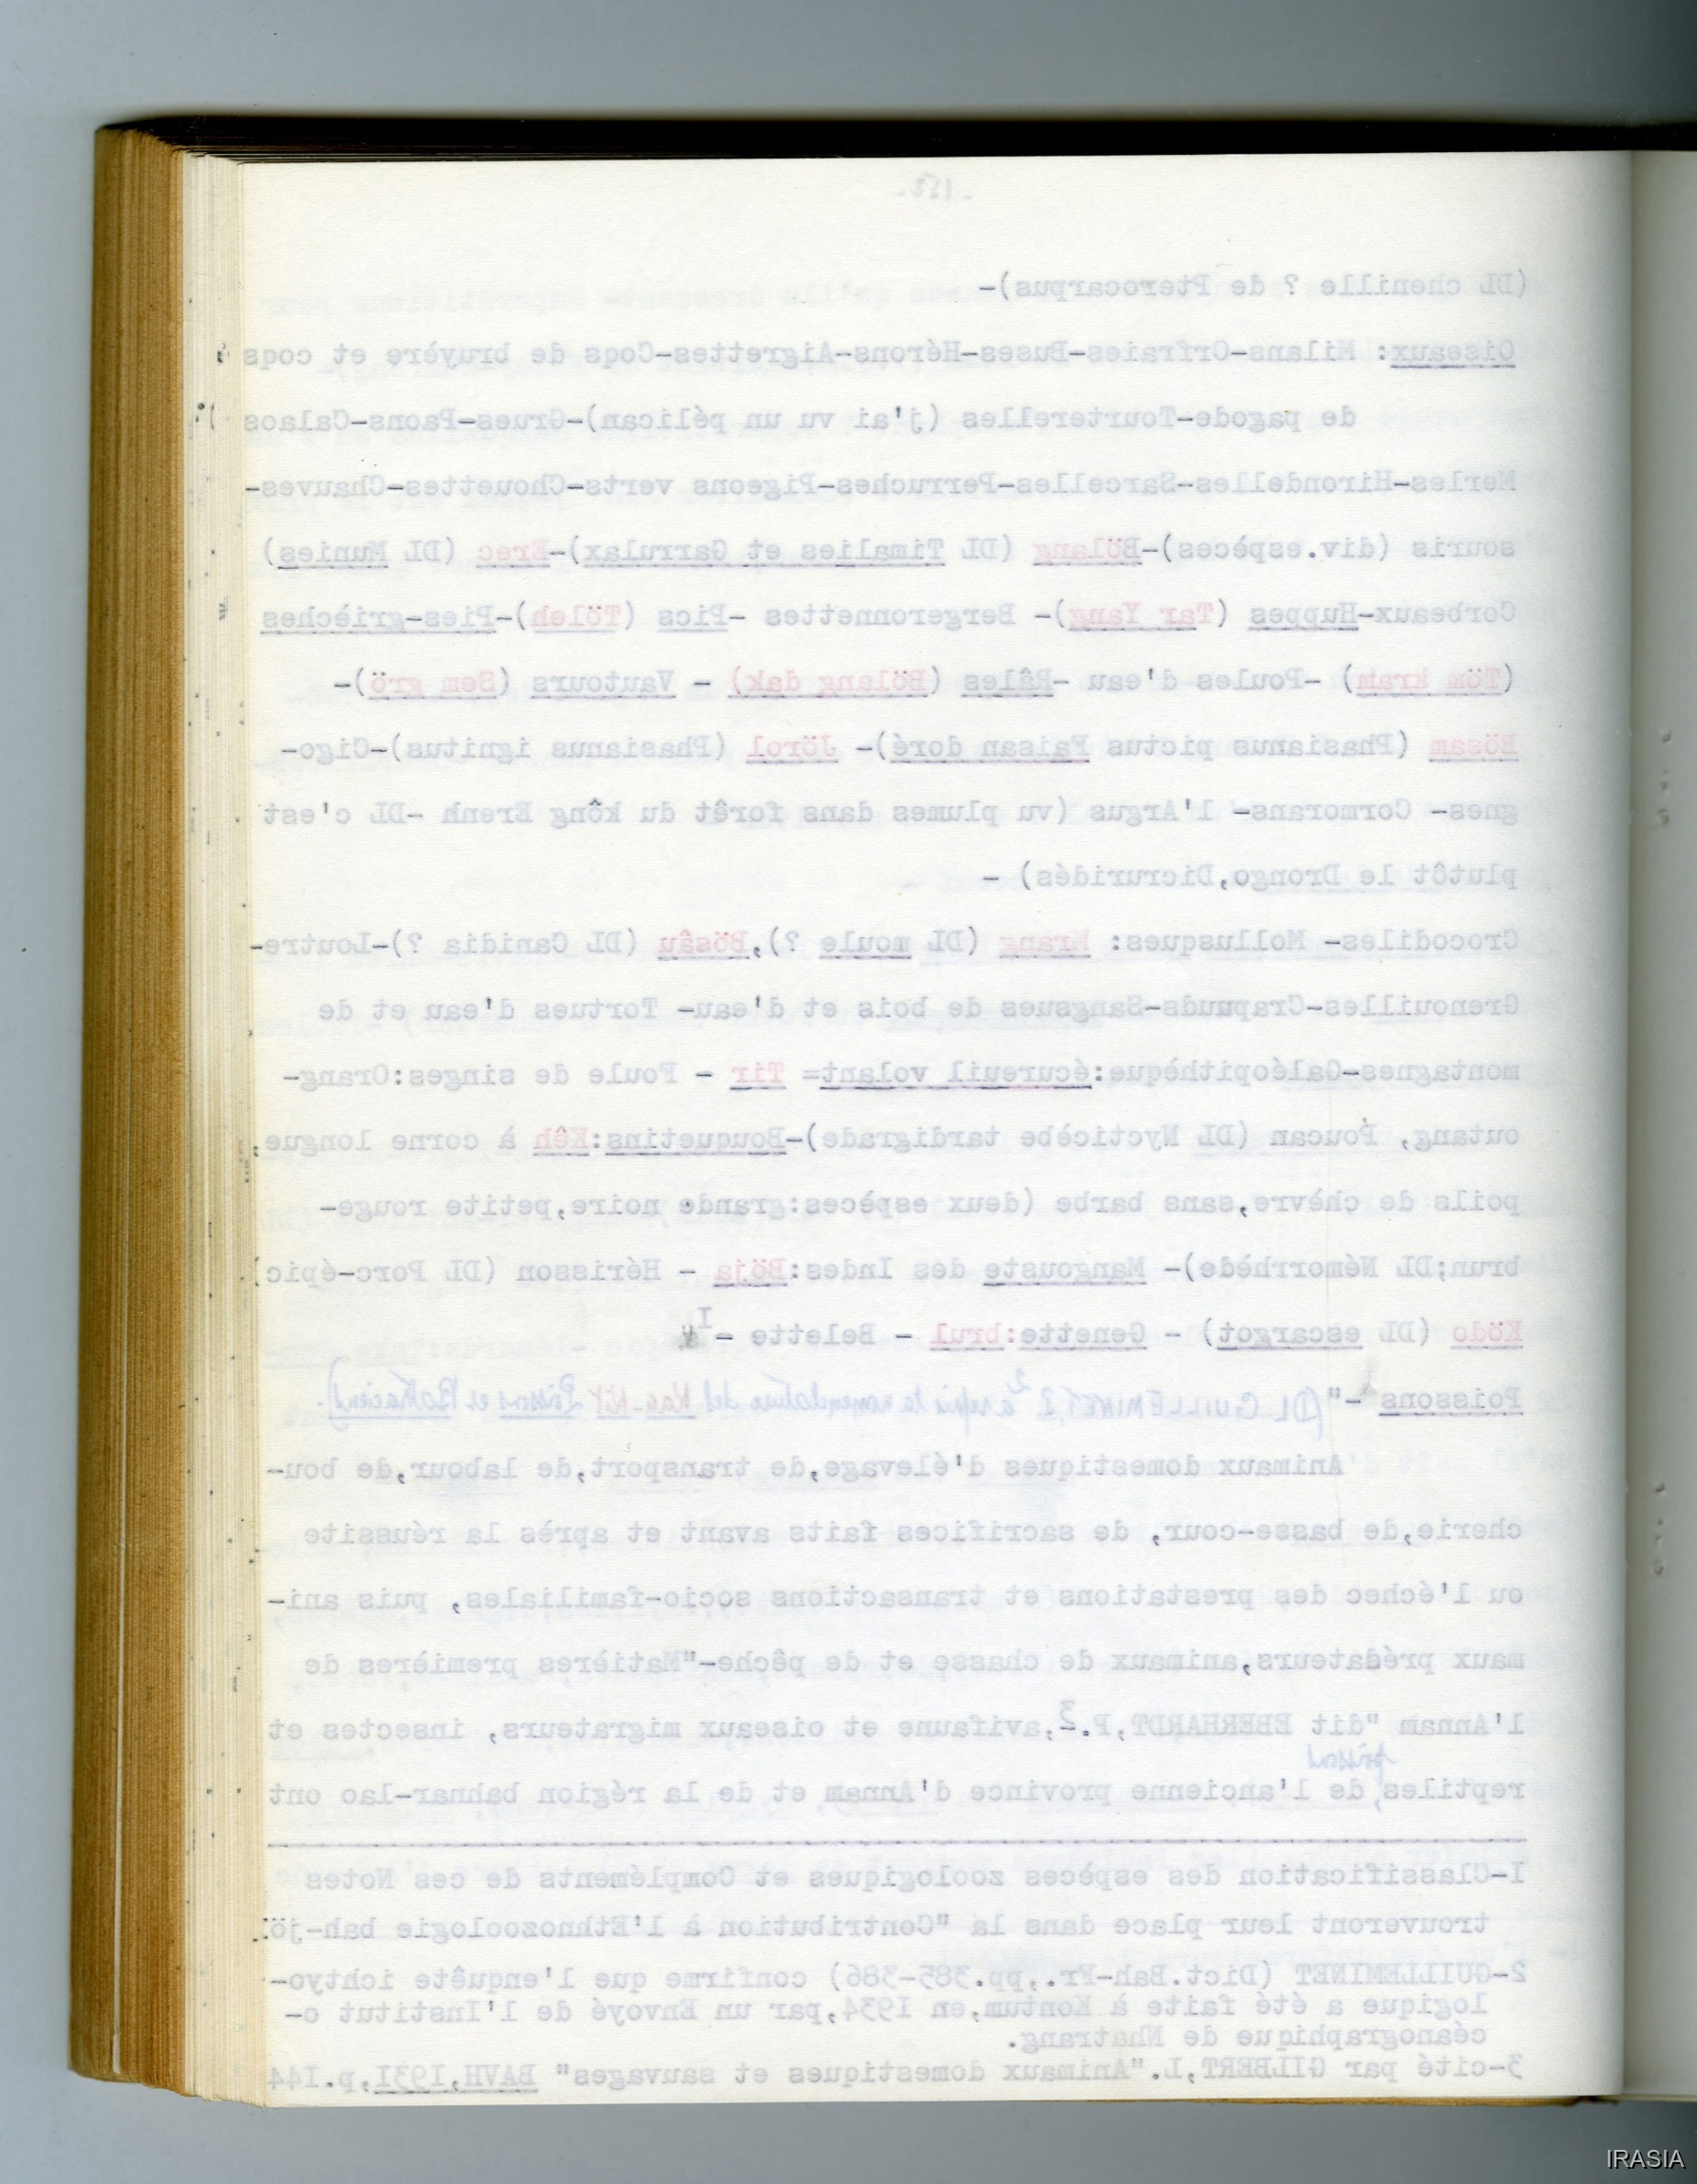 (DL chenille ? de Pterocarpus)-
Oiseaux: Milans-Orfraies-Buses-Hérons-Aigrettes-Coqs de bruyère et coqs
de pagode-Tourterelles (j'ai vu un pélican)-Grues-Paons-Calaos
Merles-Hirondelles-Sarcelles-Perruches-Pigeons verts-Chouettes-Chauves-
souris (div.espèces)-Bölang (DL Timalies et Garrulax)-Erec (DL Munies)
Corbeaux-Huppes (Tar Yang)- Bergeronnettes -Pics (Töleh)-Pies-grièches
(Töm kram) -Poules d'eau -Râles (Bölang dak) - Vautours (Sem grö)-
Bösam (Phasianus pictus Faisan doré)- Jörol (Phasianus ignitus)-Cigo-
gnes- Cormorans- l'Argus (vu plumes dans forêt du kông Erenh -DL c'est
plutôt le Drongo,Dicruridés) -
Crocodiles- Mollusques: Krang (DL moule ?),Bösâu (DL Canidia ?)-Loutre-
Grenouilles-Crapuuds-Sangsues de bois et d'eau- Tortues d'eau et de
montagnes-Galéopithèque:écureuil volant= Tir - Foule de singes:Orang-
outang, Poucan (DL Nycticèbe tardigrade)-Bouquetins:Kêh à corne longue,
poils de chèvre,sans barbe (deux espèces:grande noire,petite rouge-
brun;DL Némorrhède)- Mangouste des Indes:Böja - Hérisson (DL Porc-épic)
Ködo (DL escargot) - Genette:brul - Belette -I
Poissons -" (DL GUILLEMINET 2 a repris la nomenclature del Kag-Nit Poissons et Batraciens)-
Animaux domestiques d'élevage,de transport,de labour,de bou-
cherie,de basse-cour, de sacrifices faits avant et après la réussite
ou l'échec des prestations et transactions socio-familiales, puis ani-
maux prédateurs,animaux de chasse et de pêche-"Matières premières de
l'Annam "dit EBERHARDT,P.3,avifaune et oiseaux migrateurs, insectes et
poissons
reptiles, de l'ancienne province d'Annam et de la région bahnar-lao ont
I-Classification des espèces zoologiques et Compléments de ces Notes
trouveront leur place dans la "Contribution à l'Ethnozoologie bah-jö
2-GUILLEMINET (Dict.Bah-Fr.,pp.385-386) confirme que l'enquête ichtyo-
logique a été faite à Kontum,en I934,par un Envoyé de l'Institut o-
céanographique de Nhatrang.
3-cité par GILBERT,L."Animaux domestiques et sauvages" BAVH,I93I,p.I44
IRASIA